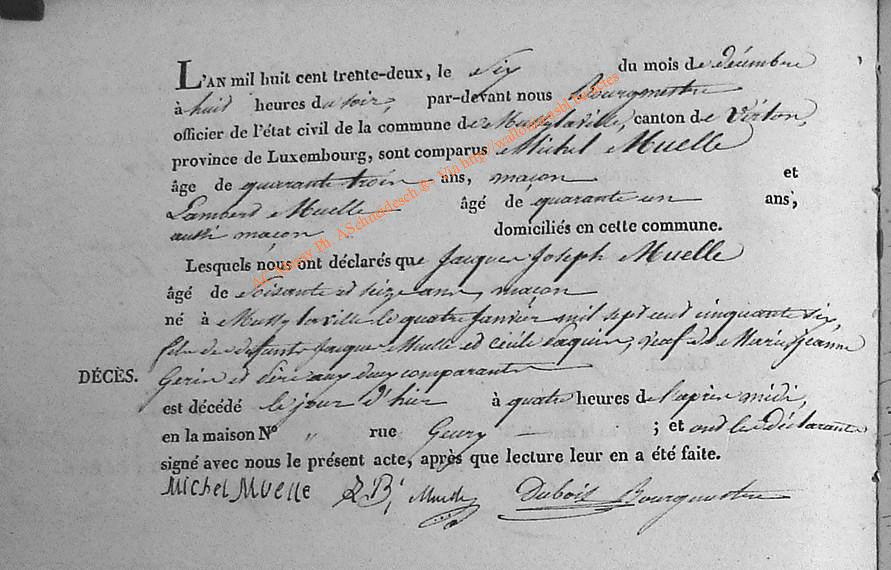 L'AN mil huit cent trente-deux, le Six du mois de décembre
à huit heures du soir, par-devant nous Bourgmestre
officier de l'état civil de la commune de Mussylaville, canton de Virton,
province de Luxembourg, sont comparus Michel Muelle
âge de quarante trois ans, maçon et
Lambert Muelle âgé de quarante un ans,
aussi maçon domiciliés en cette commune.
Lesquels nous ont déclarés que Jacques Joseph Muelle
âgé de soisante et seize ans, maçon
né à Mussylaville le quatre janvier mil sept cent cinquante six,
fils de defunts Jacque Muelle et Cécile Saquin, veuf de Marie Jeanne
DÉCÈS. Gerin et père aux deux comparants
est décédé le jour d'hier à quatre heures de l'après midi,
en la maison N° " rue Geury ; et ont les déclarants
signé avec nous le présent acte, après que lecture leur en a été faite.
MICHEL MUELLE Muelle Dubois Bourgmestre
Ac. Mussy Ph ASchneidesch © - Via http://wallonia asbl